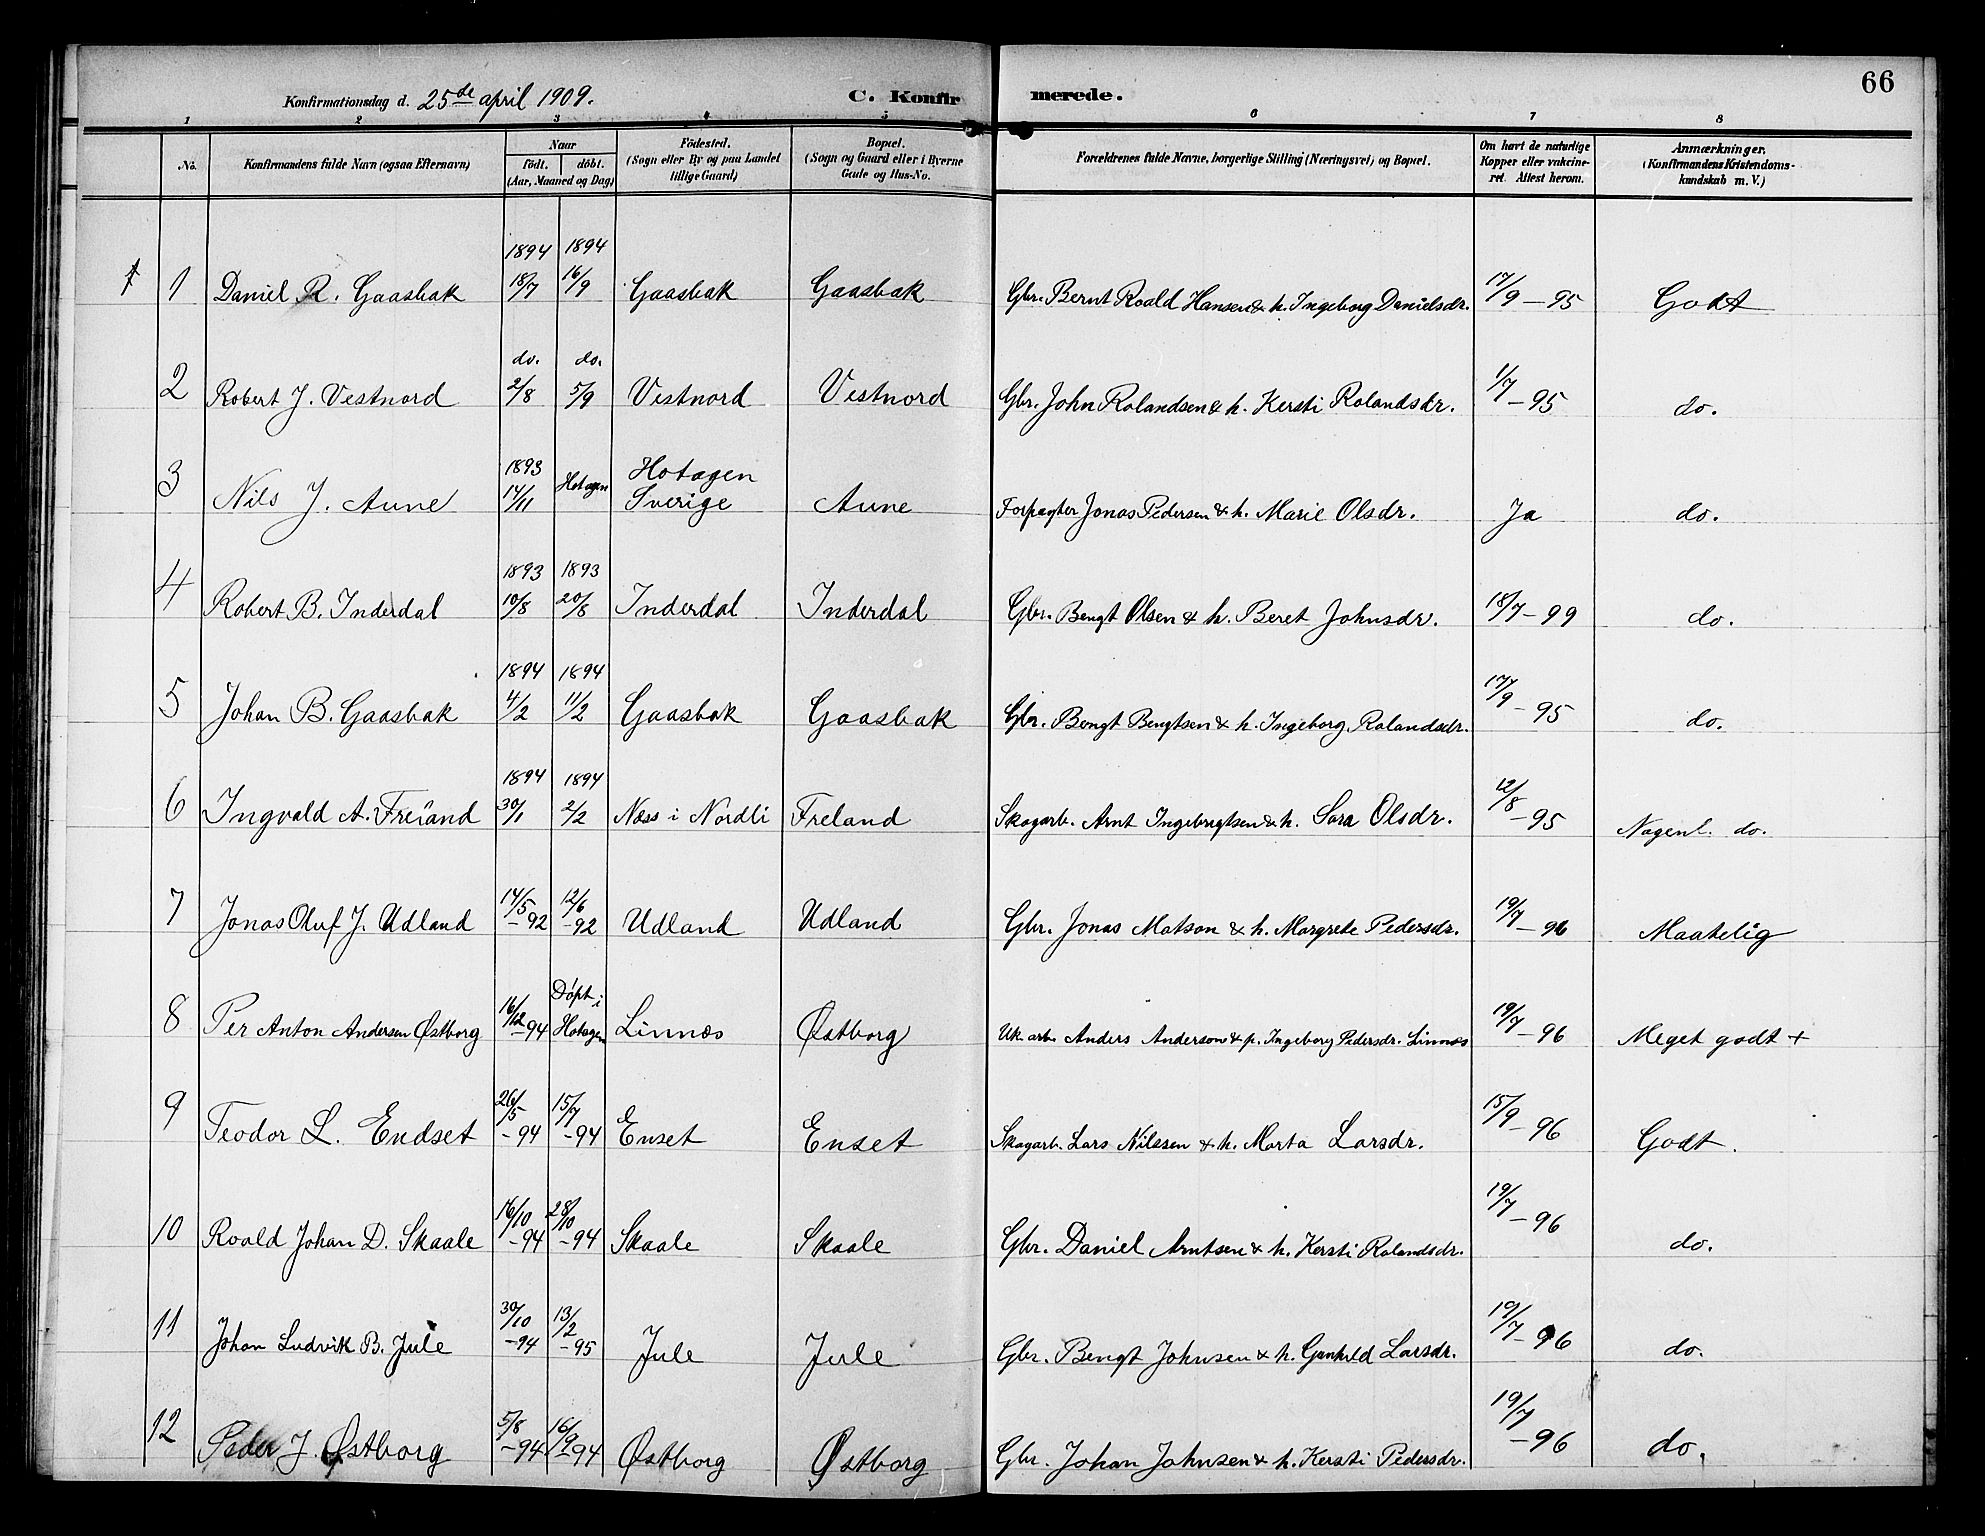 66
Konfirmationsdag d. 25de april 1909. C. Konfirmerede.
1 2 3 4 5 6 7 8
No. Konfirmandens fulde Navn (ogsaa Efternavn) Naar Födested. Bopæl. Forældrenes fulde Navne, borgerlige Stilling (Næringsvei) og Bopæl. Om havt de naturlige Anmærkninger.
födt. döbt. (Sogn eller By og paa Landet (Sogn og Gaard eller i Byerne Kopper eller vakcine- (Konfirmandens Kristendoms-
(Aar, Maaned og Dag) tillige Gaard) Gade og Hus-No. ret. Attest herom. kundskab m. V.)
1894 1894
1 Daniel R. Gaasbak 18/7 16/9 Gaasbak Gaasbak Gbr. Bernt Roald Hansen & h. Ingeborg Danielsdr. 17/9 - 95 Godt
do. do.
2 Robert J. Vestnord 2/8 5/9 Vestnord Vestnord Gbr. John Rolandsen & h. Kersti Rolandsdr. 1/7 - 95 do.
1893 Hotagen
3 Nils J. Aune 14/11 Hotagen Sverige Aune Forpagter Jonas Pedersen & h. Marie Olsdr. Ja do.
1893 1893
4 Robert B. Inderdal 10/8 20/8 Inderdal Inderdal Gbr. Bengt Olsen & h. Beret Johnsdr. 18/7 - 99 do.
1894 1894
5 Johan B. Gaasbak 4/2 11/2 Gaasbak Gaasbak Gbr. Bengt Bengtsen & h. Ingeborg Rolandsdr. 17/9 - 95 do.
1894 1894
6 Ingvald A. Freland 30/1 2/2 Næss i Nordli Freland Skogarb. Arnt Ingebrigtsen & h. Sara Olsdr. 12/8 - 95 Nogenl. do.
7 Jonas Oluf J. Udland 14/5 - 92 12/6 - 92 Udland Udland Gbr. Jonas Matson & h. Margrete Pedersdr. 19/7 - 96 Maatelig
8 Per Anton Andersen Østborg 16/12 - 94 Döpt i Hotagen Linnæs Østborg arb. Anders Anderson & p. Ingeborg Pedersdr. Linnæs 19/7 - 96 Meget godt +
9 Teodor L. Endset 26/5 - 94 15/7 - 94 Enset Enset Skogarb. Lars Nilssen & h. Marta Larsdr. 15/9 - 96 Godt.
10 Roald Johan D. Skaale 16/10 - 94 28/10 - 94 Skaale Skaale Gbr. Daniel Arntsen & h. Kersti Rolandsdr. 19/7 - 96 do.
11 Johan Ludvik B. Jule 30/10 - 94 13/2 - 95 Jule Jule Gbr. Bengt Johnsen & h. Gunhild Larsdr. 19/7 - 96 do.
12 Peder J. Østborg 5/8 - 94 16/9 - 94 Østborg Østborg Gbr. Johan Johnsen & h. Kersti Pedersdr. 19/7 - 96 do.